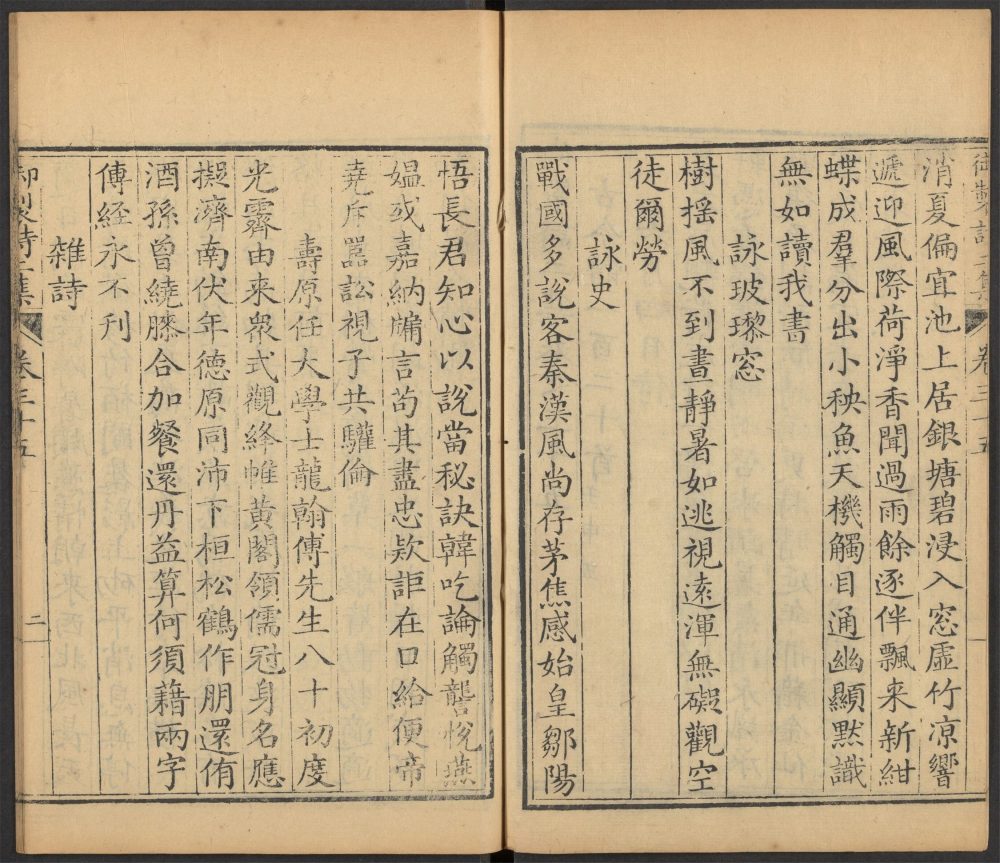 消夏偏宜池上居銀塘碧浸入窓虛竹凉響
遞迎風際荷淨香聞過雨餘逐伴飄來新紺
蝶成羣分出小秧魚天機觸目通幽顯默識
無如讀我書
詠玻瓈窓
樹摇風不到晝靜暑如逃視遠渾無礙觀空
徒爾勞
詠史
戰國多說客秦漢風尚存茅焦感始皇鄒陽
悟長君知心以說當秘訣韓吃論觸讋悅燕
媼或嘉納牖言苟其盡忠欵詎在口給便帝
堯斥嚚訟視子共驩倫
壽原任大學士龍翰傅先生八十初度
光霽由來衆式觀絳帷黃閣領儒冠身名應
擬濟南伏年德原同沛下桓松鶴作朋還侑
酒孫曾繞膝合加餐還丹益算何須藉兩字
傳經永不刋
雜詩
御製詩二集
卷三十五
二